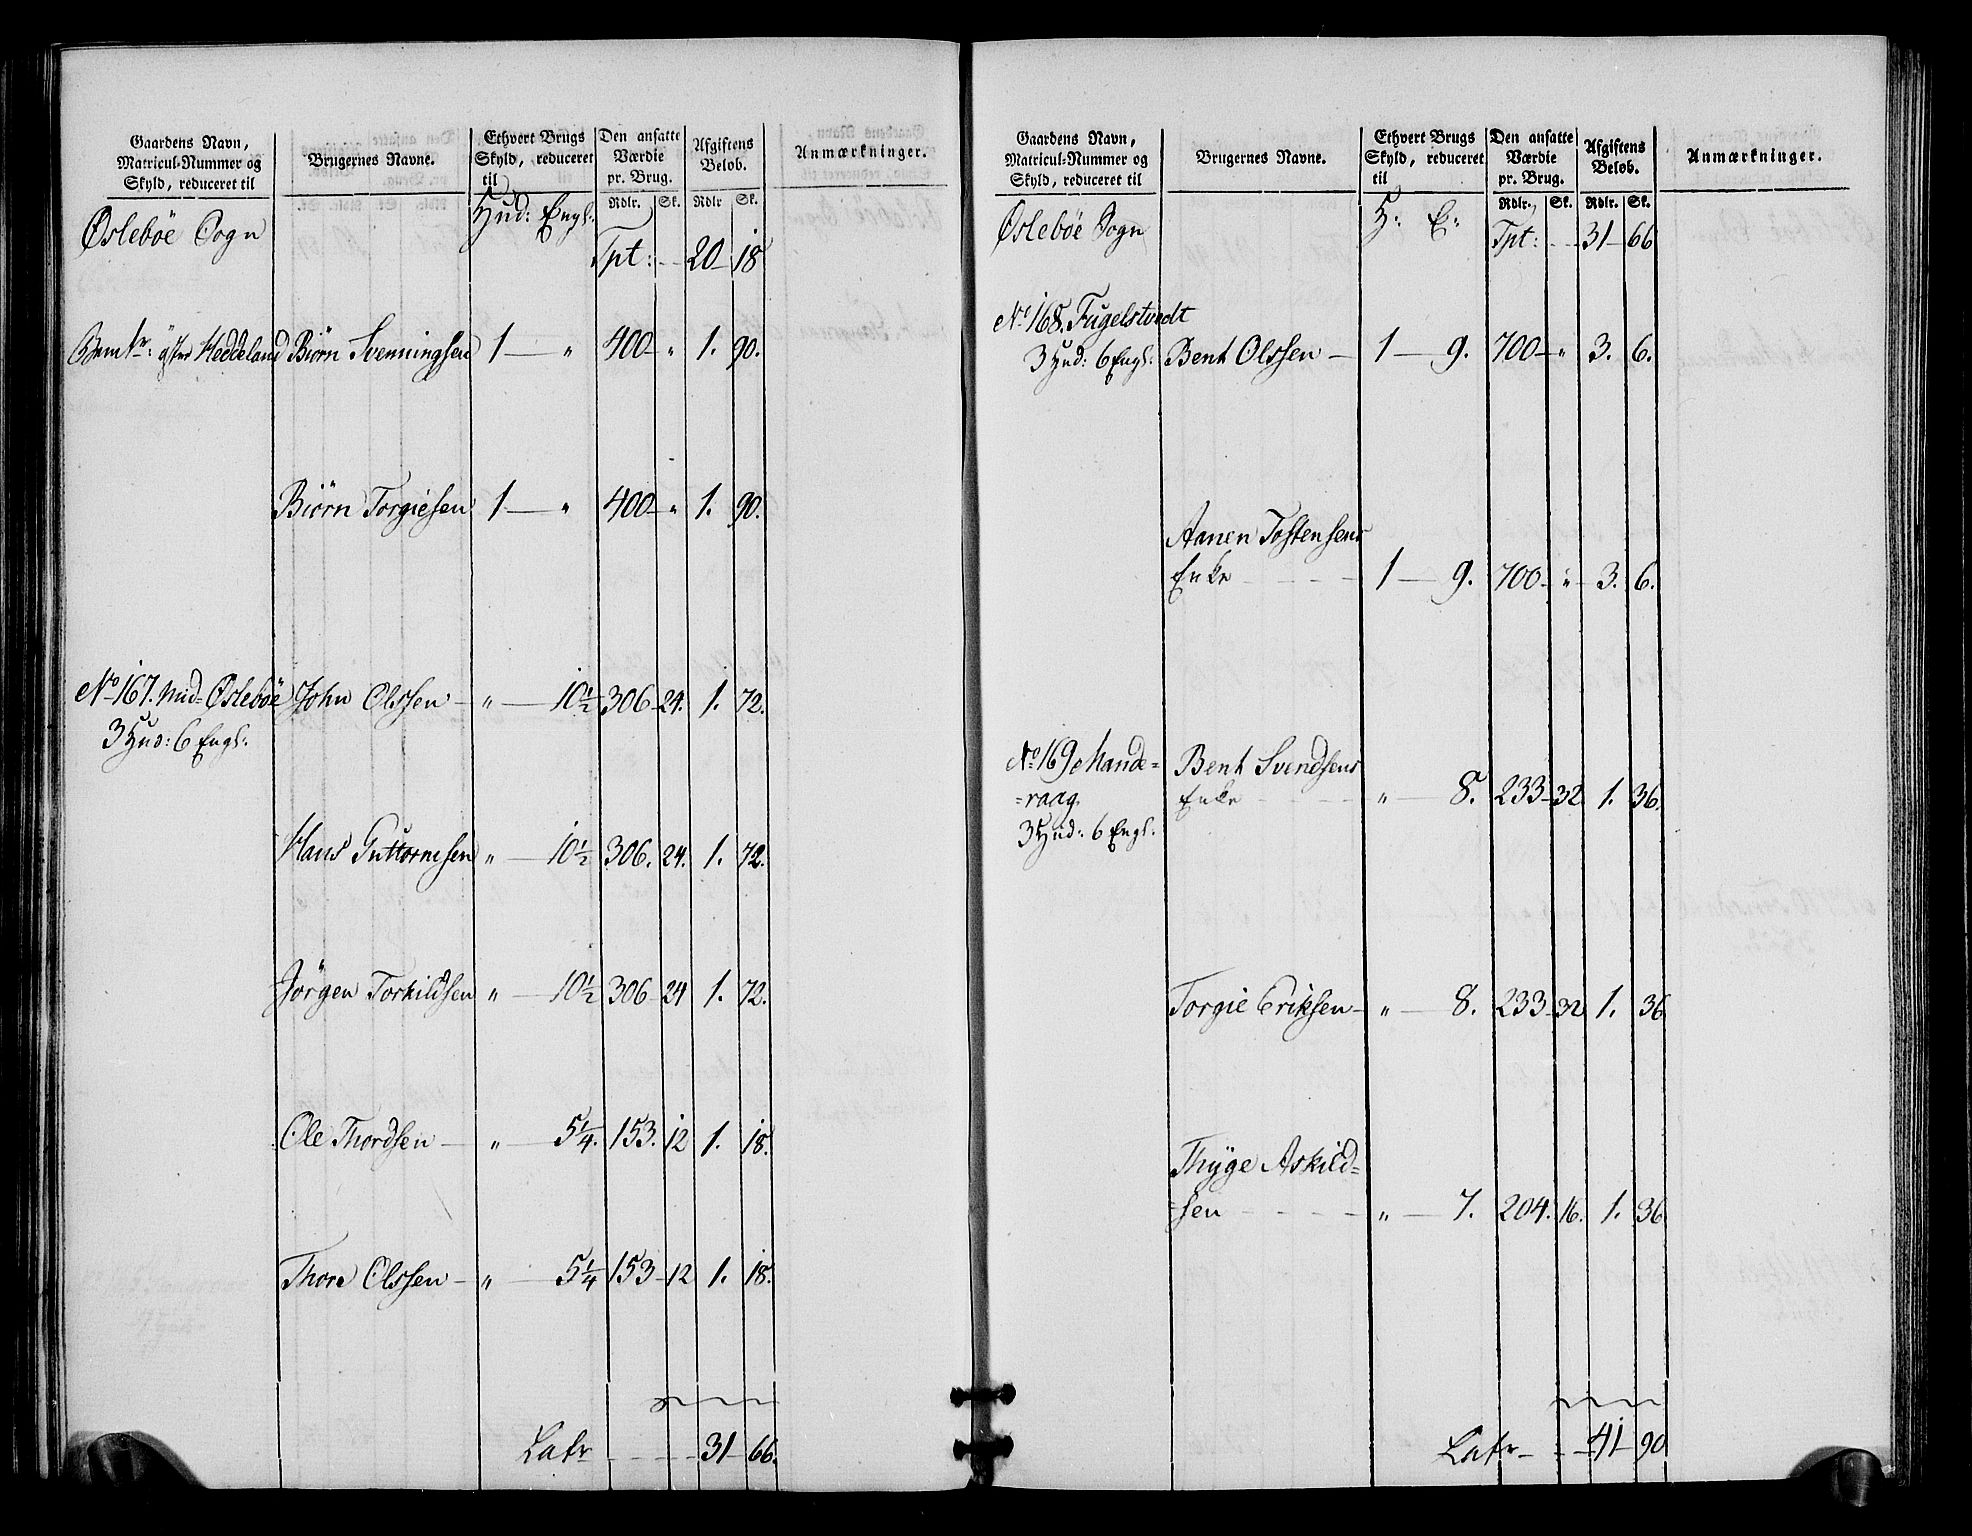 Gaardens Navn, Matricul-Nummer og Skyld, reduceret til | Brugernes Navne. | Ethvert Brugs Skyld, reduceret til | Den ansatte Værdie pr. Brug. | Afgiftens Belob. | Anmærkninger.
Hud: Engl: | Rdlr. | Sk. | Rdlr | Sk.
Øslebøe Sogn
Tpt: 20 18
øster Heddeland Biørn Svenningsen 1 — " 400 — " 1. 90.
Biørn Torgiesen 1 — " 400 — " 1. 90.
No 167. Mid-Øslebøe John Olssen — " — 10½ 306 — 24. 1. 72.
3 Hud: 6 Engl:
Hans Guttormsen " — 10½ 306. 24. 1. 72.
Jörgen Torkildsen " — 10½ 306 — 24 1. 72.
Ole Thordsen — " — 5¼. 153. 12 1. 18.
Thore Olssen — " — 5¼ 153 — 12 1. 18.
Latr 31 — 66.
Gaardens Navn, Matricul-Nummer og Skyld, reduceret til | Brugernes Navne. | Ethvert Brugs Skyld, reduceret til | Den ansatte Værdie pr. Brug. | Afgiftens Belob. | Anmærkninger.
H: E: | Rdlr. | Sk. | Rdlr. | Sk.
Øslebøe Sogn
Tpt: 31 — 66
No 168. Fugelstvedt
3 Hud: 6 Engl: Bent Olssen — 1 — 9. 700 — " 3. 6.
Aanen Tostensens
Enke 1 — 9. 700 — " 3. 6.
No 169 Mande= Bent Svendsens
=raag. Enke " — 8. 233 — 32 1. 36.
3 Hud: 6 Engl:
Torgie Eriksen — " — 8. 233 — 32 1. 36
Thyge Askild=
=sen " — 7. 204. 16. 1. 36
Latr 41 — 90